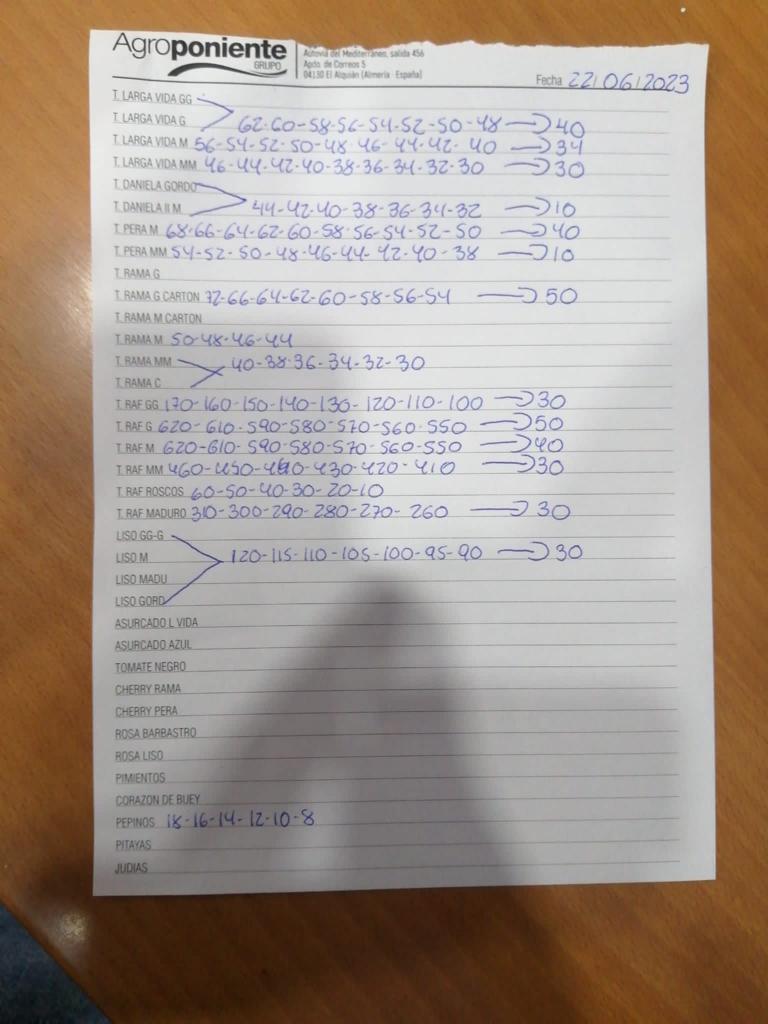 Agroponiente
GRUPO
Autovía del Mediterráneo, salida 456
Apdo. de Correos 5
04130 El Alquián (Almería - España)
Fecha 22/06/2023
T. LARGA VIDA GG
T. LARGA VIDA G 62-60-58-56-54-52-50-48 → 40
T. LARGA VIDA M 56-54-52-50-48-46-44-42-40 → 34
T. LARGA VIDA MM 46-44-42-40-38-36-34-32-30 → 30
T. DANIELA GORDO
T. DANIELA II M 44-42-40-38-36-34-32 → 10
T. PERA M 68-66-64-62-60-58-56-54-52-50 → 40
T. PERA MM 54-52-50-48-46-44-42-40-38 → 10
T. RAMA G
T. RAMA G CARTON 72-66-64-62-60-58-56-54 → 50
T. RAMA M CARTON
T. RAMA M 50-48-46-44
T. RAMA MM 40-38-36-34-32-30
T. RAMA C
T. RAF GG 170-160-150-140-130-120-110-100 → 30
T. RAF G 620-610-590-580-570-560-550 → 50
T. RAF M 620-610-590-580-570-560-550 → 40
T. RAF MM 460-450-440-430-420-410 → 30
T. RAF ROSCOS 60-50-40-30-20-10
T. RAF MADURO 310-300-290-280-270-260 → 30
LISO GG-G
LISO M 120-115-110-105-100-95-90 → 30
LISO MADU
LISO GORD
ASURCADO L VIDA
ASURCADO AZUL
TOMATE NEGRO
CHERRY RAMA
CHERRY PERA
ROSA BARBASTRO
ROSA LISO
PIMIENTOS
CORAZON DE BUEY
PEPINOS 18-16-14-12-10-8
PITAYAS
JUDIAS